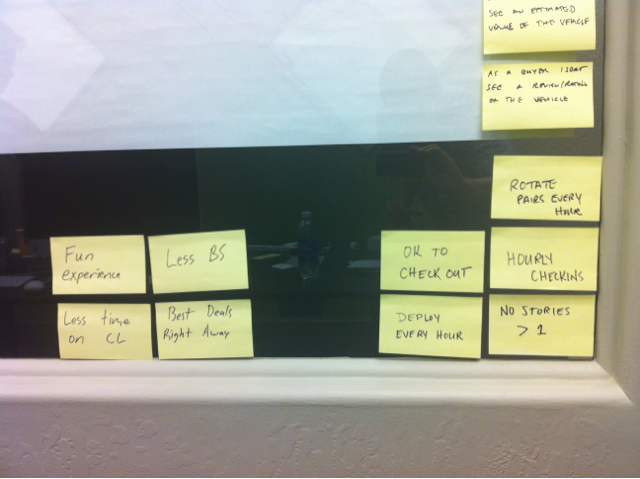 SEE AN ESTIMATED
VALUE OF THE VEHICLE
AS A BUYER I WANT
SEE A REVIEW/RATING
OF THE VEHICLE
ROTATE
PAIRS EVERY
HOUR
Fun
experience
Less BS
OK TO
CHECK OUT
HOURLY
CHECKINS
Less time
on CL
Best Deals
Right Away
DEPLOY
EVERY HOUR
NO STORIES
> 1